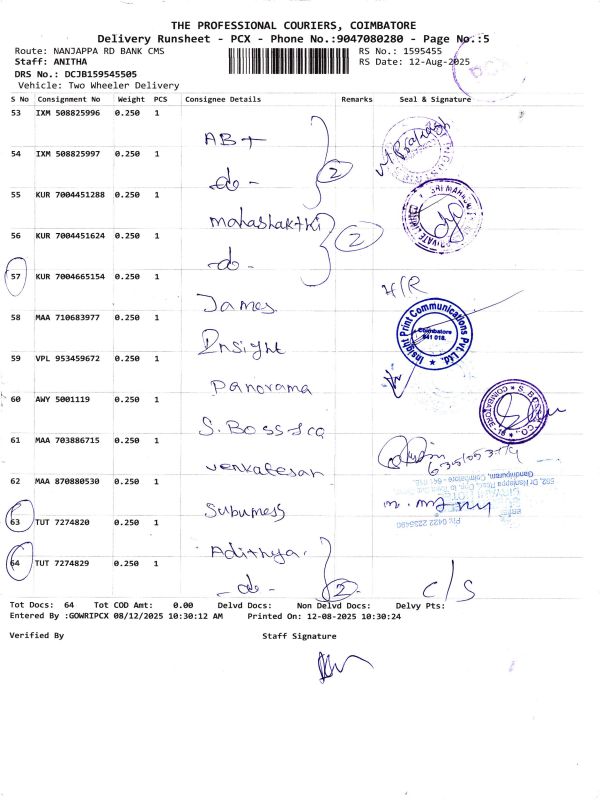 THE PROFESSIONAL COURIERS, COIMBATORE
Delivery Runsheet - PCX - Phone No.:9047080280 - Page No.:5
Route: NANJAPPA RD BANK CMS RS No.: 1595455
Staff: ANITHA RS Date: 12-Aug-2025
DRS No.: DCJB159545505
Vehicle: Two Wheeler Delivery
S No Consignment No Weight PCS Consignee Details Remarks Seal & Signature
53 IXM 508825996 0.250 1
AB+
54 IXM 508825997 0.250 1
-do- 2
55 KUR 7004451288 0.250 1
mahashakthi
SRI MAHA
PRIVATE LIMITED
56 KUR 7004451624 0.250 1
-do- 2
57 KUR 7004665154 0.250 1
James H/R
58 MAA 710683977 0.250 1
Insight
Insight Print Communications Pvt. Ltd.
Coimbatore
641 018.
59 VPL 953459672 0.250 1
Panorama
60 AWY 5001119 0.250 1
S. Boss &co
S. BOSS & CO.
61 MAA 703886715 0.250 1
venkatesan
62 MAA 870880530 0.250 1
Subumess
Gandhipuram, Coimbatore - 641 018.
PH: 0422 2235490
63 TUT 7274820 0.250 1
Adithya
64 TUT 7274829 0.250 1
-do- 2 C/S
Tot Docs: 64 Tot COD Amt: 0.00 Delvd Docs: Non Delvd Docs: Delvy Pts:
Entered By :GOWRIPCX 08/12/2025 10:30:12 AM Printed On: 12-08-2025 10:30:24
Verified By Staff Signature